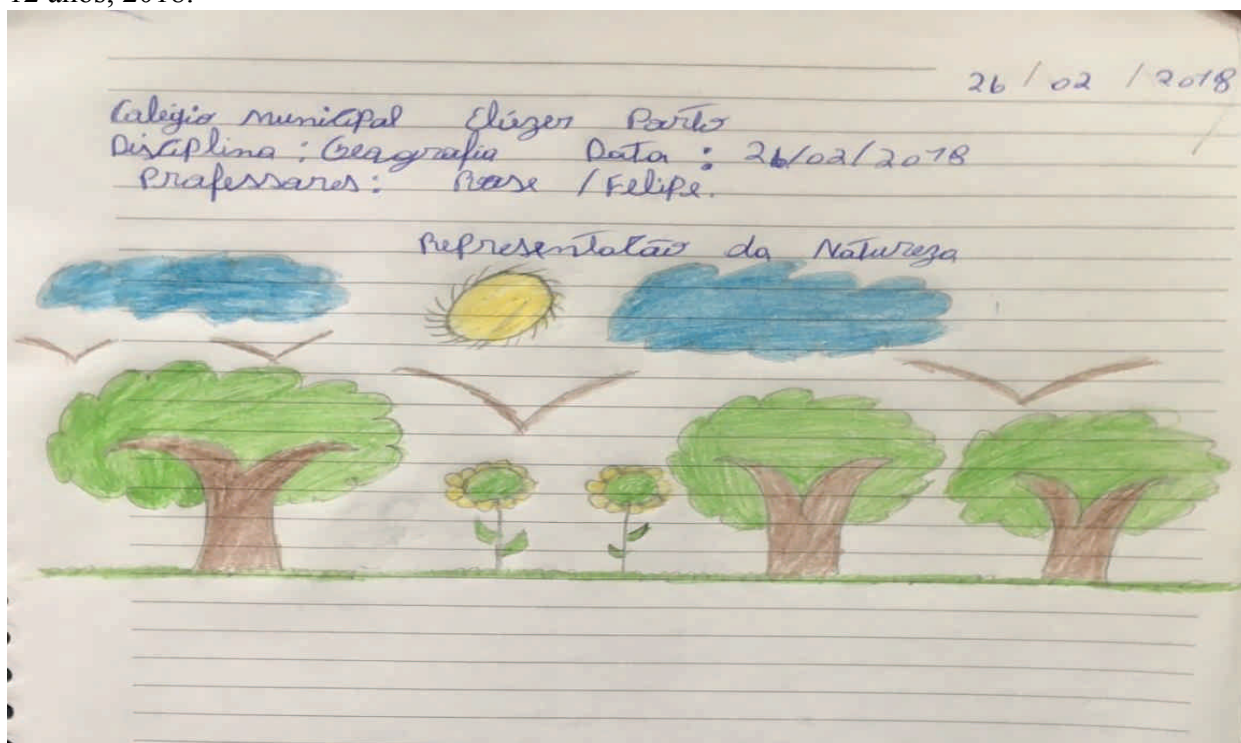 12 anos, 2018.
26 / 02 / 2018
Calégio Municipal Eliézer Porto
Disciplina : Geagrafia Data : 26/02/2018
Prafessares: Rose / Felipe.
Representalão da Natureza